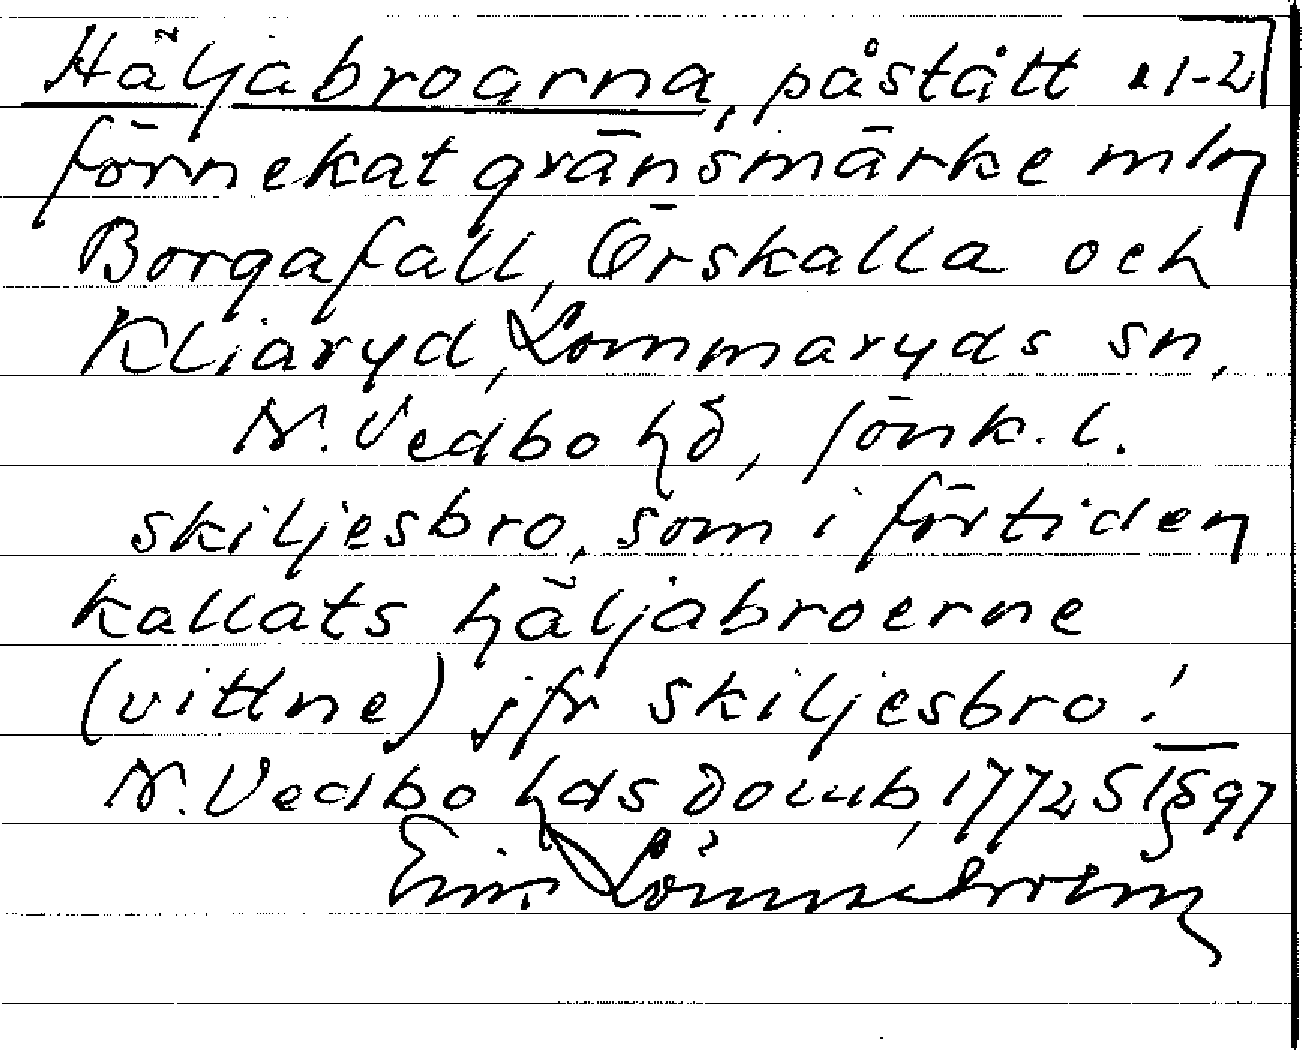 Häljabroarna, påstått 1-2
förnekat gränsmärke mln
Borgafall, Örskalla och
Kljaryd, Lommaryds sn,
N. Vedbo hd, Jönk. l.
skiljesbro, som i förtiden
kallats häljabroerne
(vittne) jfr skiljesbro!
N. Vedbo hds domb, 1772 § 97